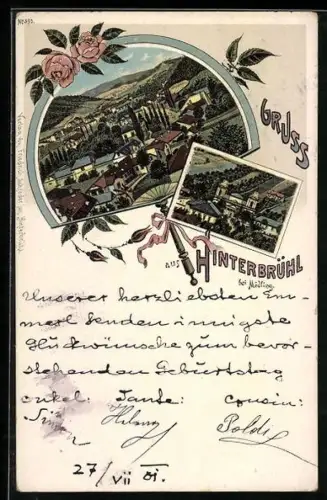 GRUSS
aus HINTERBRÜHL
bei Mödling.
Unserer herzliebsten Em-
merl senden innigste
Glückwünsche zum bevor-
stehenden Geburtstag
onkel: Tante: cousin:
Poldi
27/VII 01.